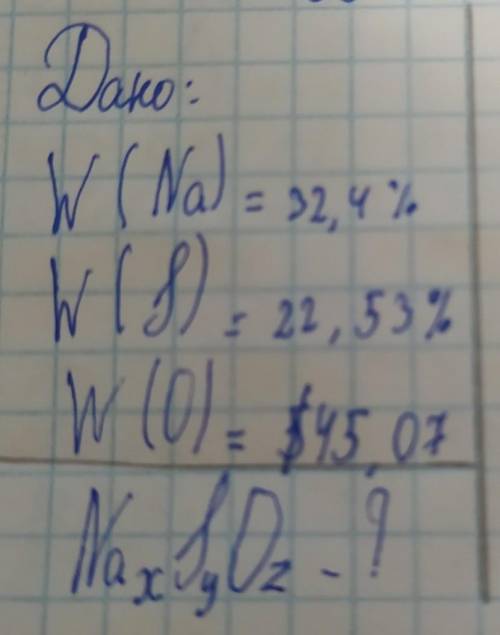 Дано:
W(Na) = 32,4%
W(S) = 22,53%
W(O) = 45,07
NaxSyOz - ?